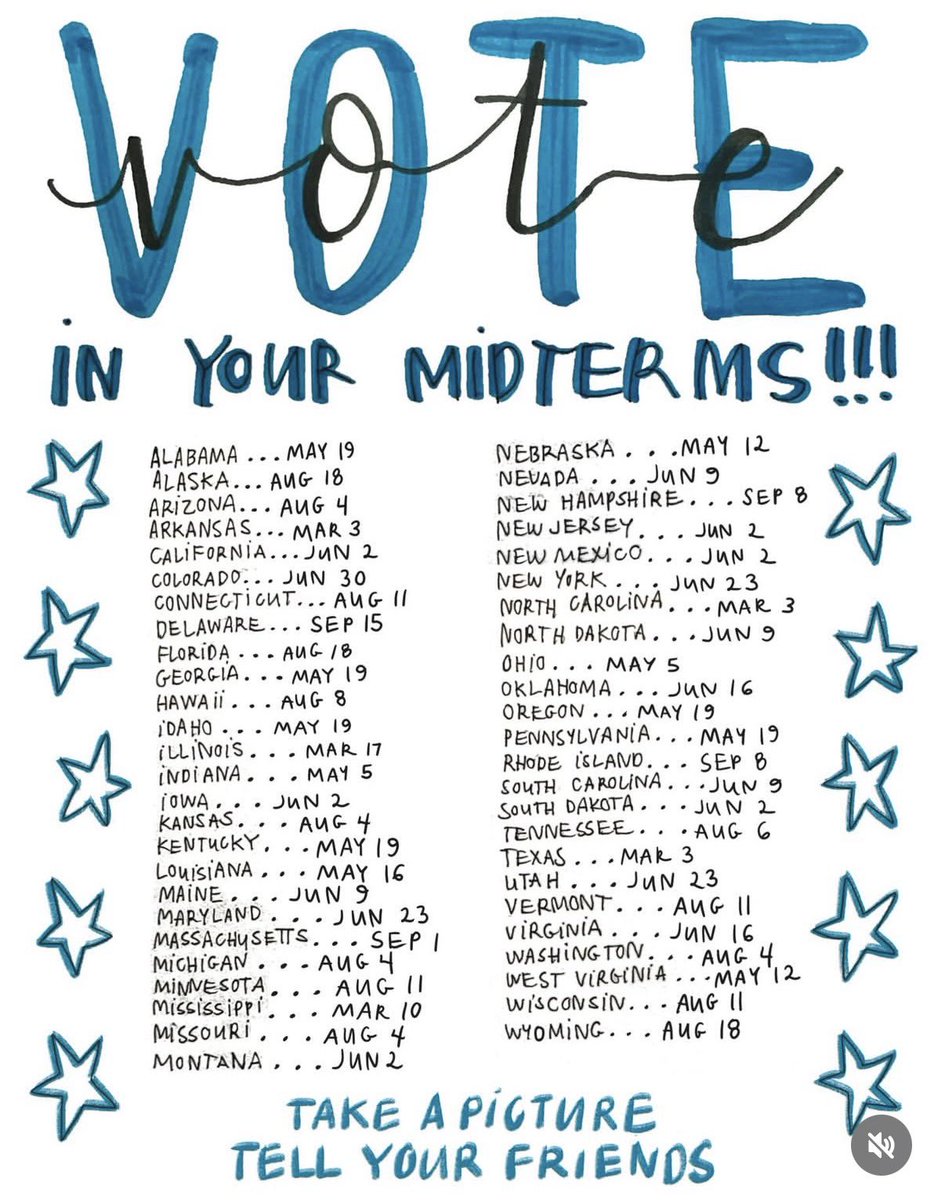 VOTE
vote
iN YOUR MiDTERMS!!!
ALABAMA ... MAY 19
ALASKA... AUG 18
ARIZONA... AUG 4
ARKANSAS... MAR 3
CALIFORNIA... JUN 2
COLORADO... JUN 30
CONNECTICUT... AUG 11
DELAWARE... SEP 15
FLORIDA ... AUG 18
GEORGIA... MAY 19
HAWAii ... AUG 8
iDAHO ... MAY 19
iLLiNOiS ... MAR 17
iNDiANA ... MAY 5
iOWA ... JUN 2
KANSAS... AUG 4
KENTUCKY... MAY 19
LOUiSiANA ... MAY 16
MAINE ... JUN 9
MARYLAND ... JUN 23
MASSACHYSETTS... SEP 1
MiCHiGAN ... AUG 4
MiNNESOTA ... AUG 11
MiSSiSSiPPi ... MAR 10
MiSSOURi ... AUG 4
MONTANA ... JUN 2
NEBRASKA ... MAY 12
NEVADA ... JUN 9
NEW HAMPSHIRE ... SEP 8
NEW JERSEY ... JUN 2
NEW MEXICO ... JUN 2
NEW YORK ... JUN 23
NORTH CAROLINA ... MAR 3
NORTH DAKOTA ... JUN 9
OHiO ... MAY 5
OKLAHOMA ... JUN 16
OREGON ... MAY 19
PENNSYLVANiA ... MAY 19
RHODE iSLAND... SEP 8
SOUTH CAROLiNA ... JUN 9
SOUTH DAKOTA ... JUN 2
TENNESSEE... AUG 6
TEXAS ... MAR 3
UTAH ... JUN 23
VERMONT ... AUG 11
ViRGiNiA ... JUN 16
WASHiNGTON... AUG 4
WEST ViRGiNiA ... MAY 12
WiSCONSiN... AUG 11
WYOMiNG... AUG 18
TAKE A PiCTURE
TELL YOUR FRiENDS